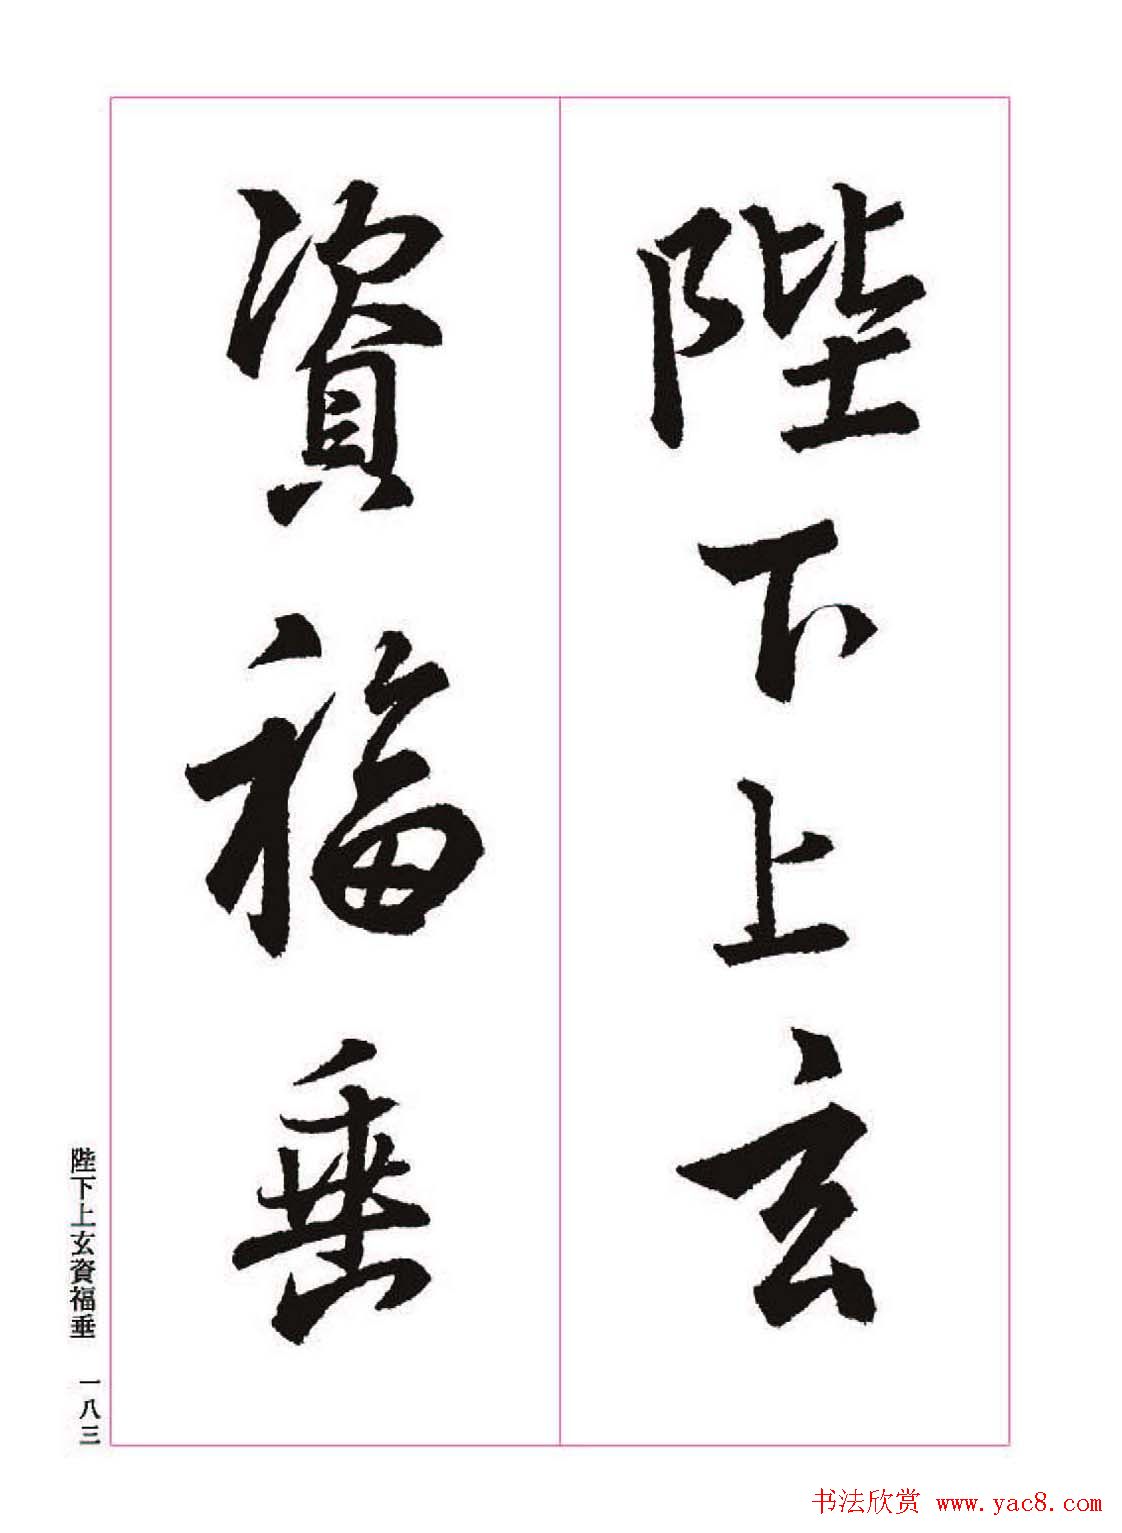 陛下上玄
資福垂
陛下上玄資福垂
一八三
书法欣赏 www.yac8.com